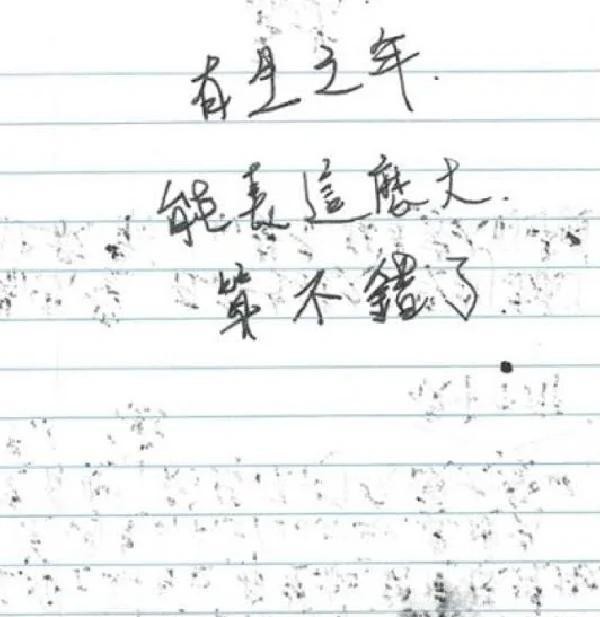 有生之年
能長這麼大
算不錯了